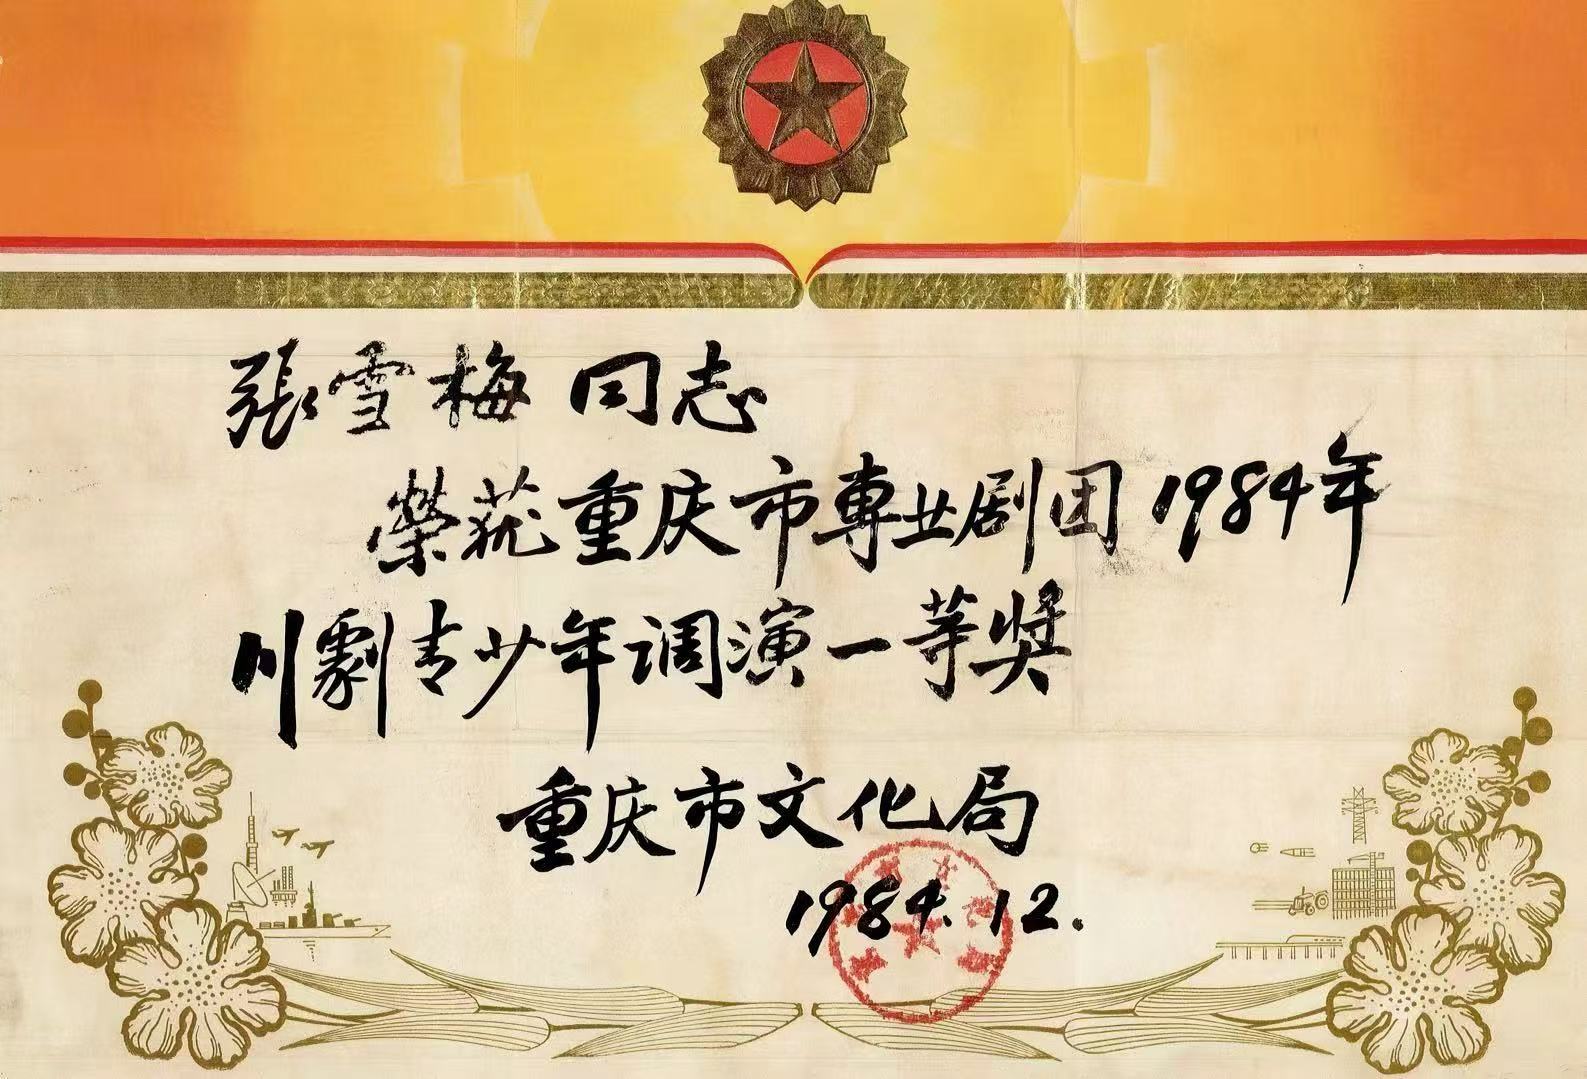 張雪梅 同志
榮获重庆市專业剧团1984年
川劇青少年调演一等奖
重庆市文化局
1984.12.